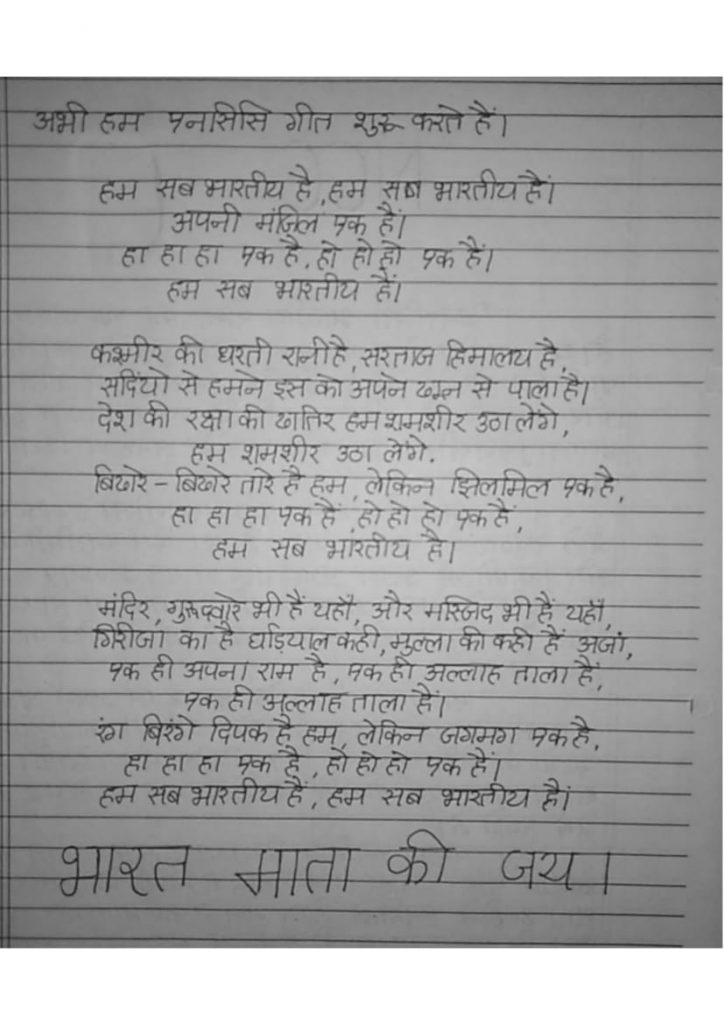 अभी हम एनसिसि गीत शुरू करते हैं।
हम सब भारतीय है, हम सब भारतीय हैं।
अपनी मंज़िल एक हैं।
हा हा हा एक है, हो हो हो एक हैं।
हम सब भारतीय हैं।
कश्मीर की धरती रानी है, सरताज हिमालय है,
सदियो से हमने इस को अपने खून से पाला है।
देश की रक्षा की खातिर हम शमशीर उठा लेंगे,
हम शमशीर उठा लेंगे.
बिखरे - बिखरे तारे है हम, लेकिन झिलमिल एक है,
हा हा हा एक हैं, हो हो हो एक है,
हम सब भारतीय है।
मंदिर, गुरूद्वारे भी हैं यहाँ, और मस्जिद भी हैं यहाँ,
गिरीजा का है घड़ियाल कही, मुल्ला की कही हैं अजां,
एक ही अपना राम है, एक ही अल्लाह ताला हैं,
एक ही अल्लाह ताला हैं।
रंग बिरंगे दिपक है हम, लेकिन जगमग एक है,
हा हा हा एक है, हो हो हो एक हैं।
हम सब भारतीय हैं, हम सब भारतीय है।
भारत माता की जय।